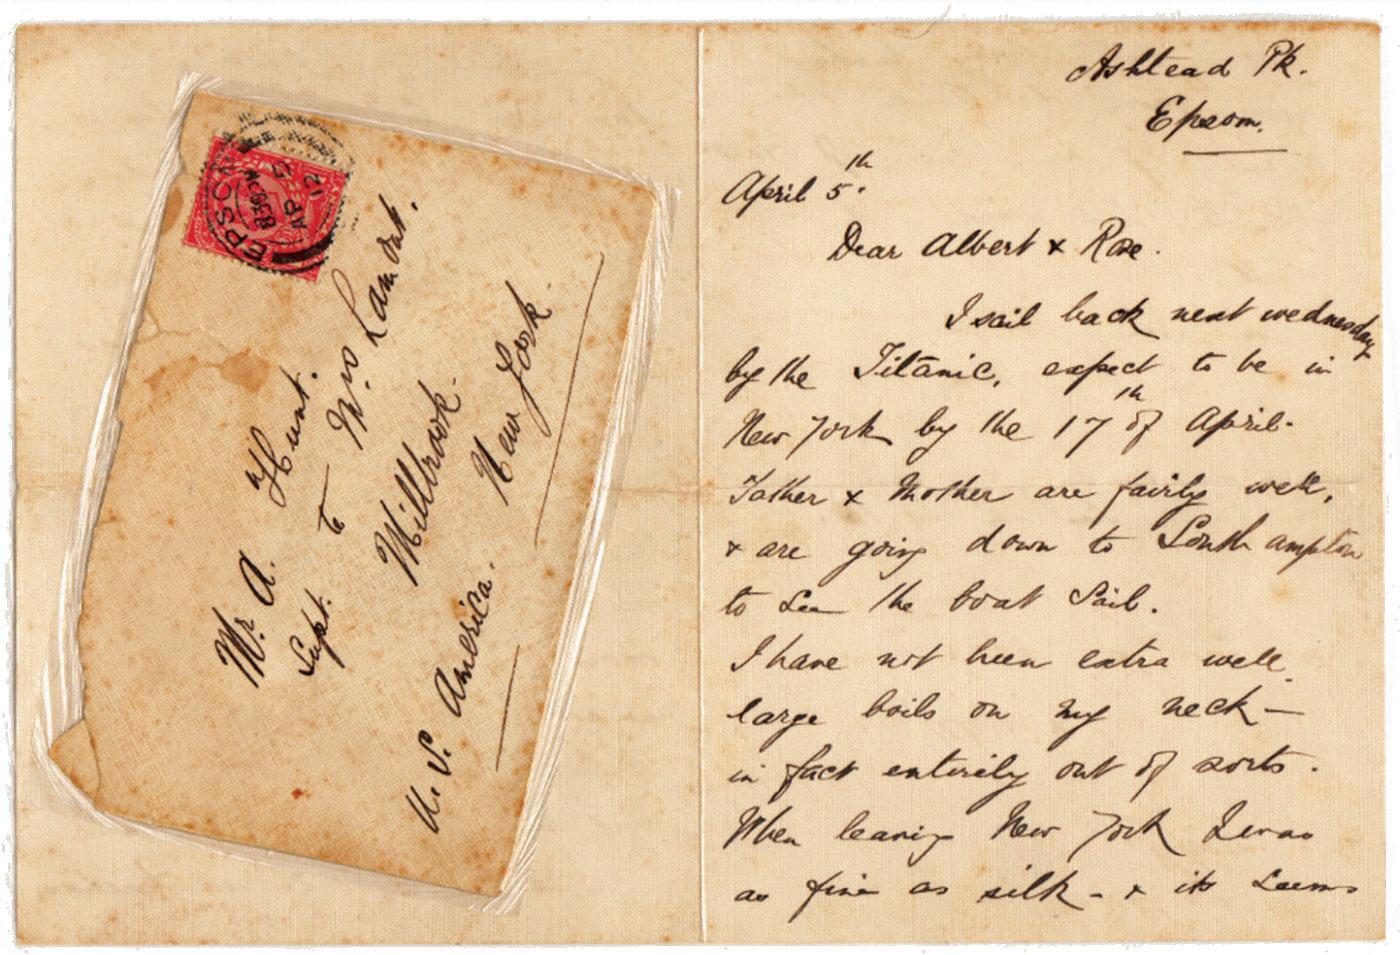 EPSOM
8.30 PM
AP 5
12
Mr. A. Hunt.
Supt. to Mrs Lamont.
Millbrook.
New York.
U. S. America.
Ashtead Pk.
Epsom.
April 5th.
Dear Albert & Rose.
I sail back next wednesday
by the Titanic, expect to be in
New York by the 17th of April.
Father & Mother are fairly well,
& are going down to Southampton
to see the boat Sail.
I have not been extra well
large boils on my neck —
in fact entirely out of sorts.
When leaving New York I was
as fine as silk - & it seems